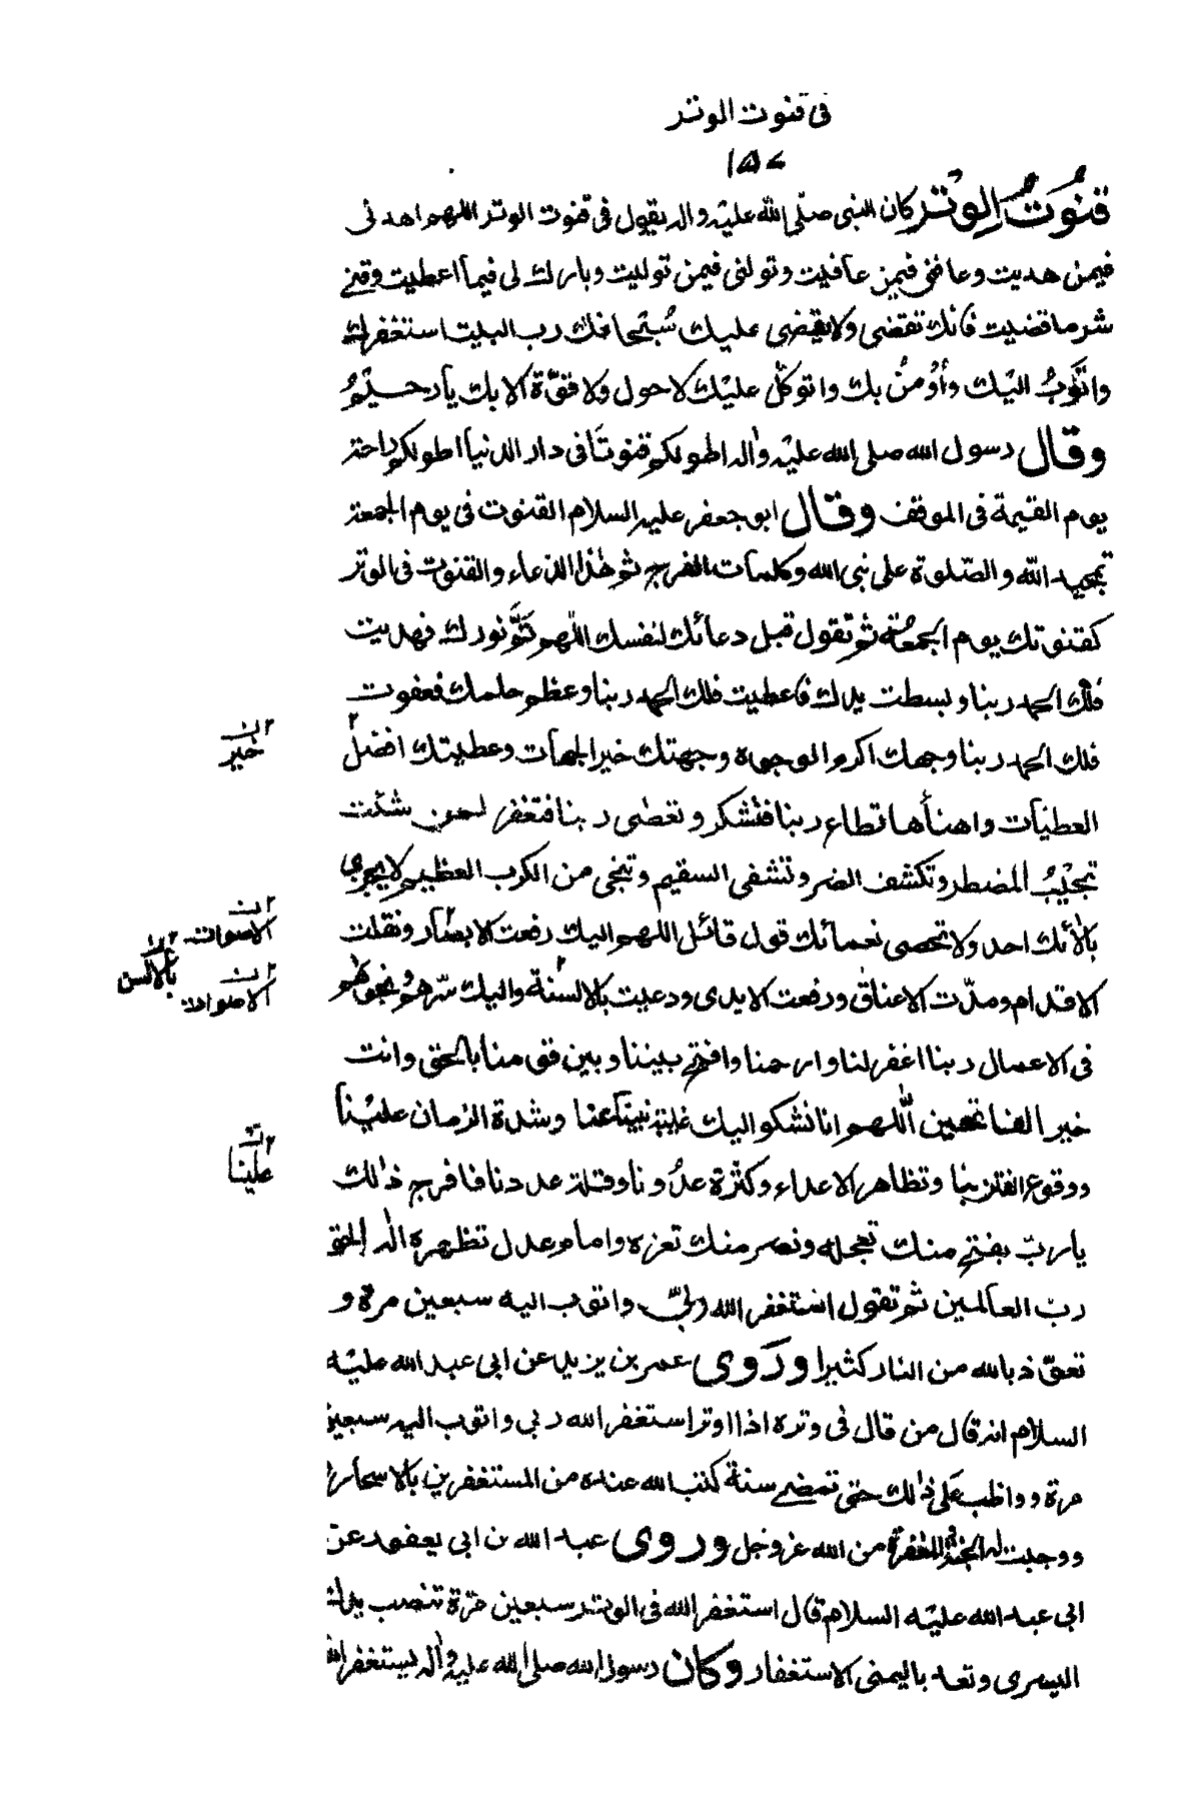 فى قنوت الوتر
١٥٧
قنُوتُ الِوتْر كان النبى صلّى اللّه عليه واله يقول فى قنوت الوتر اللهم اهدنى
فيمن هديت وعافنى فيمن عافيت وتولنى فيمن توليت وبارك لى فيما اعطيت وقنى
شر ما قضيت فانك تقضى ولا يقضى عليك سُبْحانك رب البيت استغفرك
واتَوبُ اليْك واُؤمنُ بك واتوكّل عليْك لاحول ولا قوّة الا بك يا رحيْمُ
وقال رسول الله صلى الله عليْه واله اطولكم قنوتًا فى دار الدنيا اطولكم راحة
يوم القيمة فى الموقف وقال ابو جعفر عليه السلام القنوت فى يوم الجمعة
تمجيد اللّه والصّلوة على نبى الله وكلمات الفرج ثم هٰذا الدعاء والقنوت فى الوتر
كقنوتك يوم الجمعُة ثم تقول قبل دعائك لنفسك اللّهم تَمَّ نورك فهديت
فلك الحمد ربنا وبسطت يدك فاعطيت فلك الحمد ربنا وعظم حلمك فعفوت
فلك الحمد ربنا وجهك اكرم الوجوه وجهتك خير الجهات وعطيتك افضل
ن خير
العطيات واهنأها تطاع ربنا فتشكر وتعصٰى ربنا فتغفر لمن شئت
تجيْبُ المضطر وتكشف الضر وتشفى السقيم وتنجى من الكرب العظيم لا يجزى
بالائك احد ولا تحصى نعمائك قول قائل اللهم اليك رفعت الابصار ونقلت
ن الاصوات
الاقدام ومدّت الاعناق ورفعت الايدى ودعيت بالالسنة واليك سرّهم ونجواهم
بالالسن
ن الاصوات
فى الاعمال ربنا اغفر لنا وارحمنا وافتح بيننا وبين قومنا بالحق وانت
خير الفاتحين اللّهم انا نشكو اليك غيبة نبينا عنا وشدة الزمان عليْنا
ووقوع الفتن بنا وتظاهر الاعداء وكثرة عدُونا وقلة عددنا فافرج ذٰلك
ن علينا
يا ربّ بفتح منك تعجله ونصر منك تعزه وامام عدل تظهره اله الحق
ربّ العالمين ثم تقول استغفر الله ربىّ واتوب اليه سبعين مرة و
تعوّذ بالله من النار كثيرا وَرَوى عمر بن يزيد عن ابى عبد الله عليْه
السلام انه قال من قال فى وتره اذا اوتر استغفر الله ربى واتوب اليه سبعين
مرة وواظب على ذٰلك حتى تمضى سنة كتب الله عنده من المستغفرين بالاسحار
ووجبت له الجنة والمغفرة من الله عز وجل وروى عبد الله بن ابى يعفور عن
ابى عبد الله عليْه السلام قال استغفر الله فى الوتر سبعين مرّة تنصب يدك
اليسرى وتعد باليمنى الاستغفار وكان رسول الله صلى الله عليه واله يستغفر الله